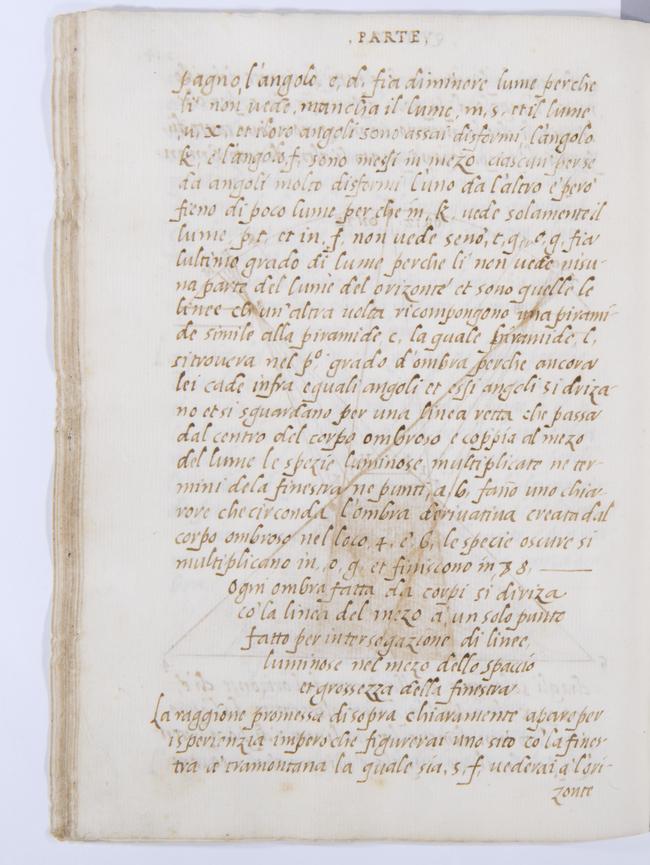 . PARTE .
pagno, l'angolo, e, d, fia di minere lume perche
li non vede, manchia il lume, m, s, et il lume
u, x, et i loro angoli sono assai disformi, l'angolo
k, e l'angolo, f, sono messi in mezo ciascun per se
da angoli molto disformi l'uno da l'altro e però
fieno di poco lume perche in, k, vede solamente il
lume, p, t, et in, f, non vede senò, t, q, e, g, fia
l'ultimo grado di lume perche li non vede nisu-
na parte del lume del orizonte et sono quelle le
linee ch un'altra volta ricompongono una pirami-
de simile alla piramide, c, la quale piramide, l,
si trovera nel pº grado d'ombra perche ancora
lei cade infra equali angoli et essi angoli si driza-
no et si sguardano per una linea retta che passa
dal centro del corpo ombroso e coppia al mezo
del lume le spezie luminose, multiplicate ne ter-
mini dela finestra ne punti, a, b, fano uno chia-
rore che circonda l'ombra derivativa creata dal
corpo ombroso nel loco, 4, e, 6, le specie oscure si
multiplicano in, o, g, et finiscono in, 7 8,
Ogni ombra fatta da corpi si diriza
cò la linea del mezo à un solo punto
fatto per intersegazione di linee,
luminose nel mezo dello spaccio
et grossezza della finestra
La raggione promessa di sopra chiaramente apare per
isperienzia impero che figurerai uno sito cò la fines-
tra à tramontana la quale sia, s, f, vederai à l'ori-
zonte